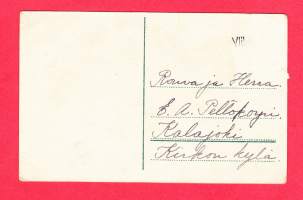 VIII
Rouva ja Herra.
E. A. Pellokorpi.
Kalajoki
Kirkon kylä